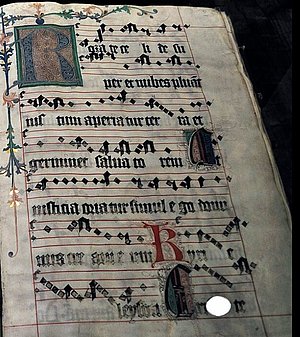 Rora te ce li de su
per et nubes pluant
ius tum aperia tur ter ra et
germinet salua to rem E
iusticia oria tur simul e go domi
nus cre aui e um Kyri